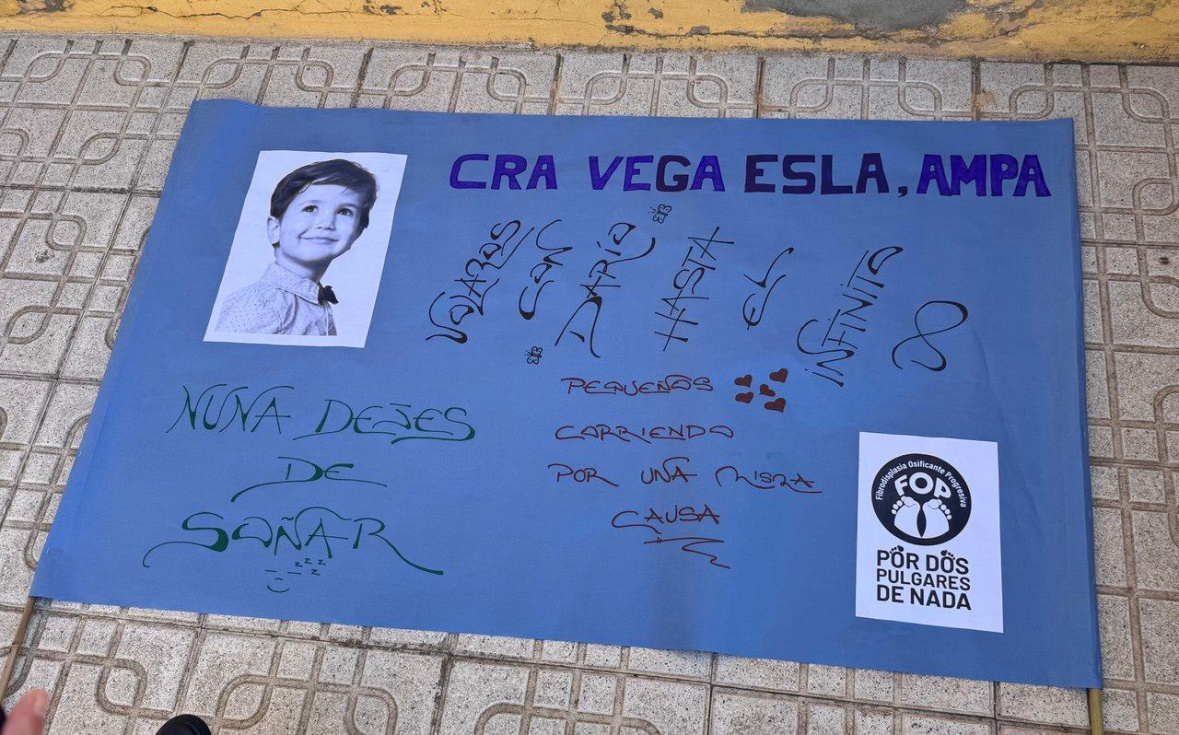 CRA VEGA ESLA, AMPA
VOLAROS CON DARÍO HASTA EL INFINITO 8
NUNA DEJES
DE
SOÑAR
zzz
PEQUEÑOS
CORRIENDO
POR UNA MISMA
CAUSA
Fibrodisplasia Osificante Progresiva
FOP
POR DOS
PULGARES
DE NADA